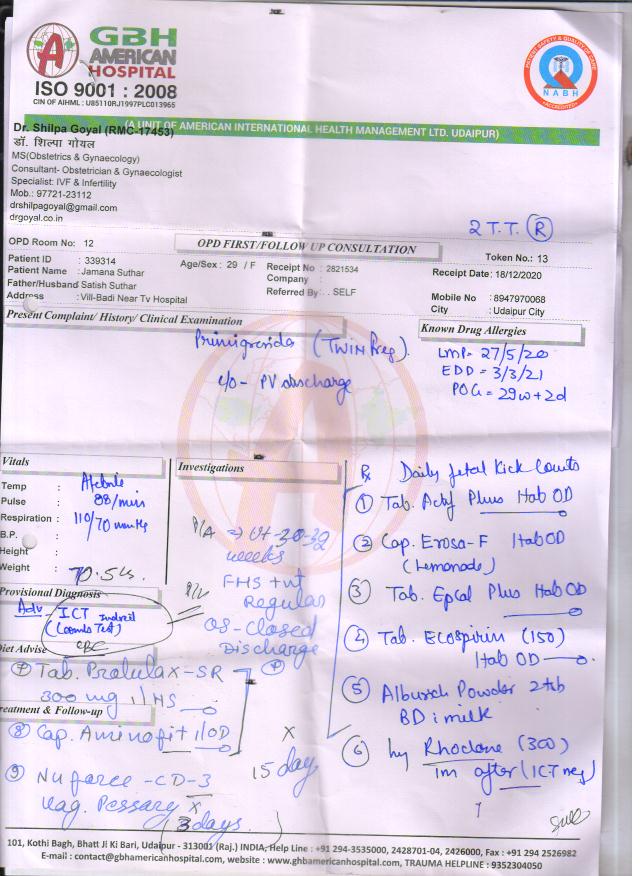 GBH
AMERICAN
HOSPITAL
ISO 9001 : 2008
CIN OF AIHML : U85110RJ1997PLC013965
PATIENT SAFETY & QUALITY OF CARE
NABH
ACCREDITED
(A UNIT OF AMERICAN INTERNATIONAL HEALTH MANAGEMENT LTD. UDAIPUR)
Dr. Shilpa Goyal (RMC-17453)
डॉ. शिल्पा गोयल
MS(Obstetrics & Gynaecology)
Consultant- Obstetrician & Gynaecologist
Specialist: IVF & Infertility
Mob.: 97721-23112
drshilpagoyal@gmail.com
drgoyal.co.in
2 T.T. (R)
OPD Room No: 12
OPD FIRST/FOLLOW UP CONSULTATION
Token No.: 13
Patient ID : 339314
Age/Sex : 29 / F
Receipt No : 2821534
Receipt Date : 18/12/2020
Patient Name : Jamana Suthar
Company :
Father/Husband : Satish Suthar
Referred By : . SELF
Mobile No : 8947970068
Address : Vill-Badi Near Tv Hospital
City : Udaipur City
Present Complaint/ History/ Clinical Examination
Known Drug Allergies
Primigravida (TWIN Preg).
c/o - PV discharge
LMP= 27/5/20
EDD = 3/3/21
POG = 29w+2d
Vitals
Temp : Afebrile
Pulse : 88/min
Respiration : 110/70 mmHg
B.P. :
Height :
Weight : 70.5
Investigations
P/A => Ut - 30-32
weeks
FHS +nt
Regular
P/V
OS-Closed
Discharge (P)
Provisional Diagnosis
Adv - ICT Indirect
(Coombs Test)
CBC
Diet Advise
Rx Daily fetal Kick Counts
(1) Tab. Plus 1tab OD
(2) Cap. Erosa-F 1tab OD
(Lemonade)
(3) Tab. Epcal Plus 1tab OD
(4) Tab. Ecospirin (150)
1tab OD
(5) Powder 2tsb
BD c milk
(6) Inj Rhoclone (300)
im after (ICT neg)
(7) Tab. Pralulax-SR
300 mg 1 HS
Treatment & Follow-up
(8) Cap. Aminofit 1 OD
x
15 day
(9) Nuforce -CD-3
Vag. Pessary x
(3 days)
101, Kothi Bagh, Bhatt Ji Ki Bari, Udaipur - 313001 (Raj.) INDIA, Help Line : +91 294-3535000, 2428701-04, 2426000, Fax : +91 294 2526982
E-mail : contact@gbhamericanhospital.com, website : www.gbhamericanhospital.com, TRAUMA HELPLINE : 9352304050